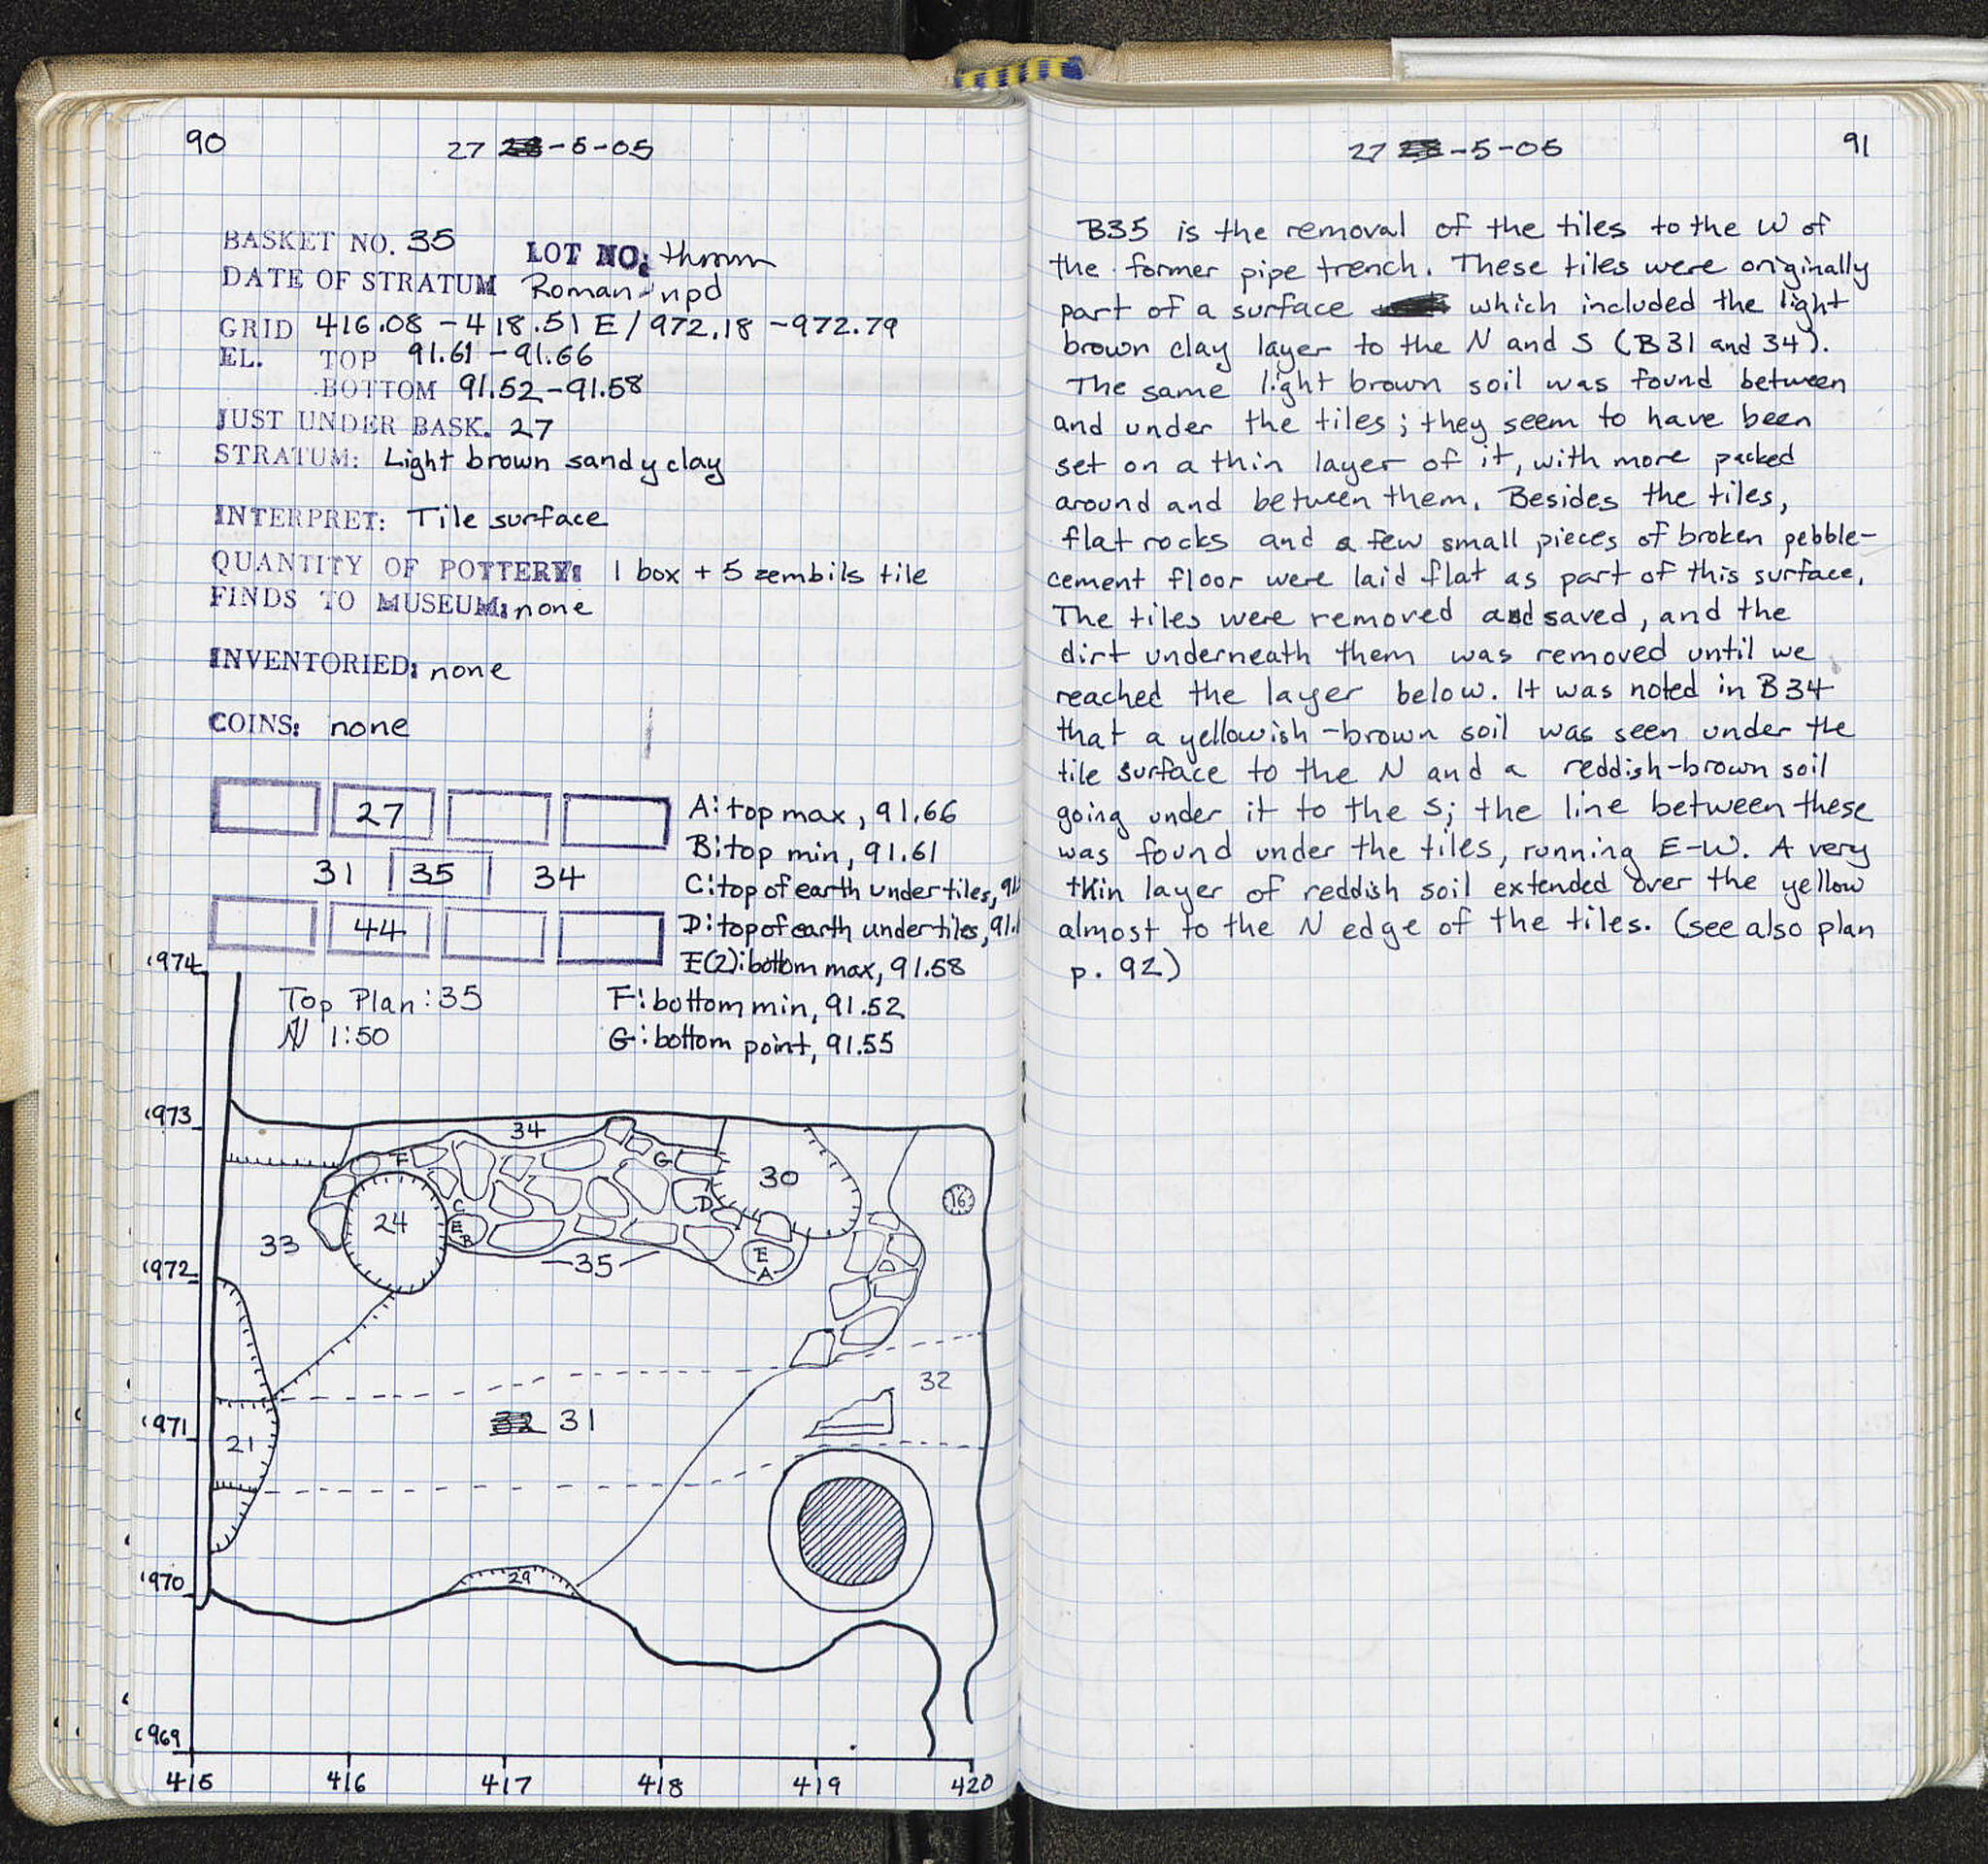 90
27 -5-05
BASKET NO. 35
LOT NO:
DATE OF STRATUM Roman-npd
GRID 416.08 - 418.51 E / 972.18 - 972.79
EL. TOP 91.61 - 91.66
BOTTOM 91.52 - 91.58
JUST UNDER BASK. 27
STRATUM: Light brown sandy clay
INTERPRET: Tile surface
QUANTITY OF POTTERY: 1 box + 5 zembils tile
FINDS TO MUSEUM: none
INVENTORIED: none
COINS: none
27
31 35 34
44
A: top max, 91.66
B: top min, 91.61
C: top of earth under tiles,
D: top of earth under tiles,
E(2): bottom max, 91.58
F: bottom min, 91.52
G: bottom point, 91.55
Top Plan: 35
N 1:50
1974
1973
1972
1971
1970
1969
34
F
G
30
16
24
C
D
E
B
33
35
E
A
32
31
21
29
415 416 417 418 419 420
27 -5-05
91
B35 is the removal of the tiles to the W of
the former pipe trench. These tiles were originally
part of a surface which included the light
brown clay layer to the N and S (B31 and 34).
The same light brown soil was found between
and under the tiles; they seem to have been
set on a thin layer of it, with more packed
around and between them. Besides the tiles,
flat rocks and a few small pieces of broken pebble-
cement floor were laid flat as part of this surface.
The tiles were removed and saved, and the
dirt underneath them was removed until we
reached the layer below. It was noted in B34
that a yellowish-brown soil was seen under the
tile surface to the N and a reddish-brown soil
going under it to the S; the line between these
was found under the tiles, running E-W. A very
thin layer of reddish soil extended over the yellow
almost to the N edge of the tiles. (see also plan
p. 92)